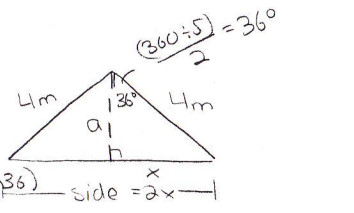 (360÷5) = 36°
2
4m
36°
4m
a
x
36)
side = 2x